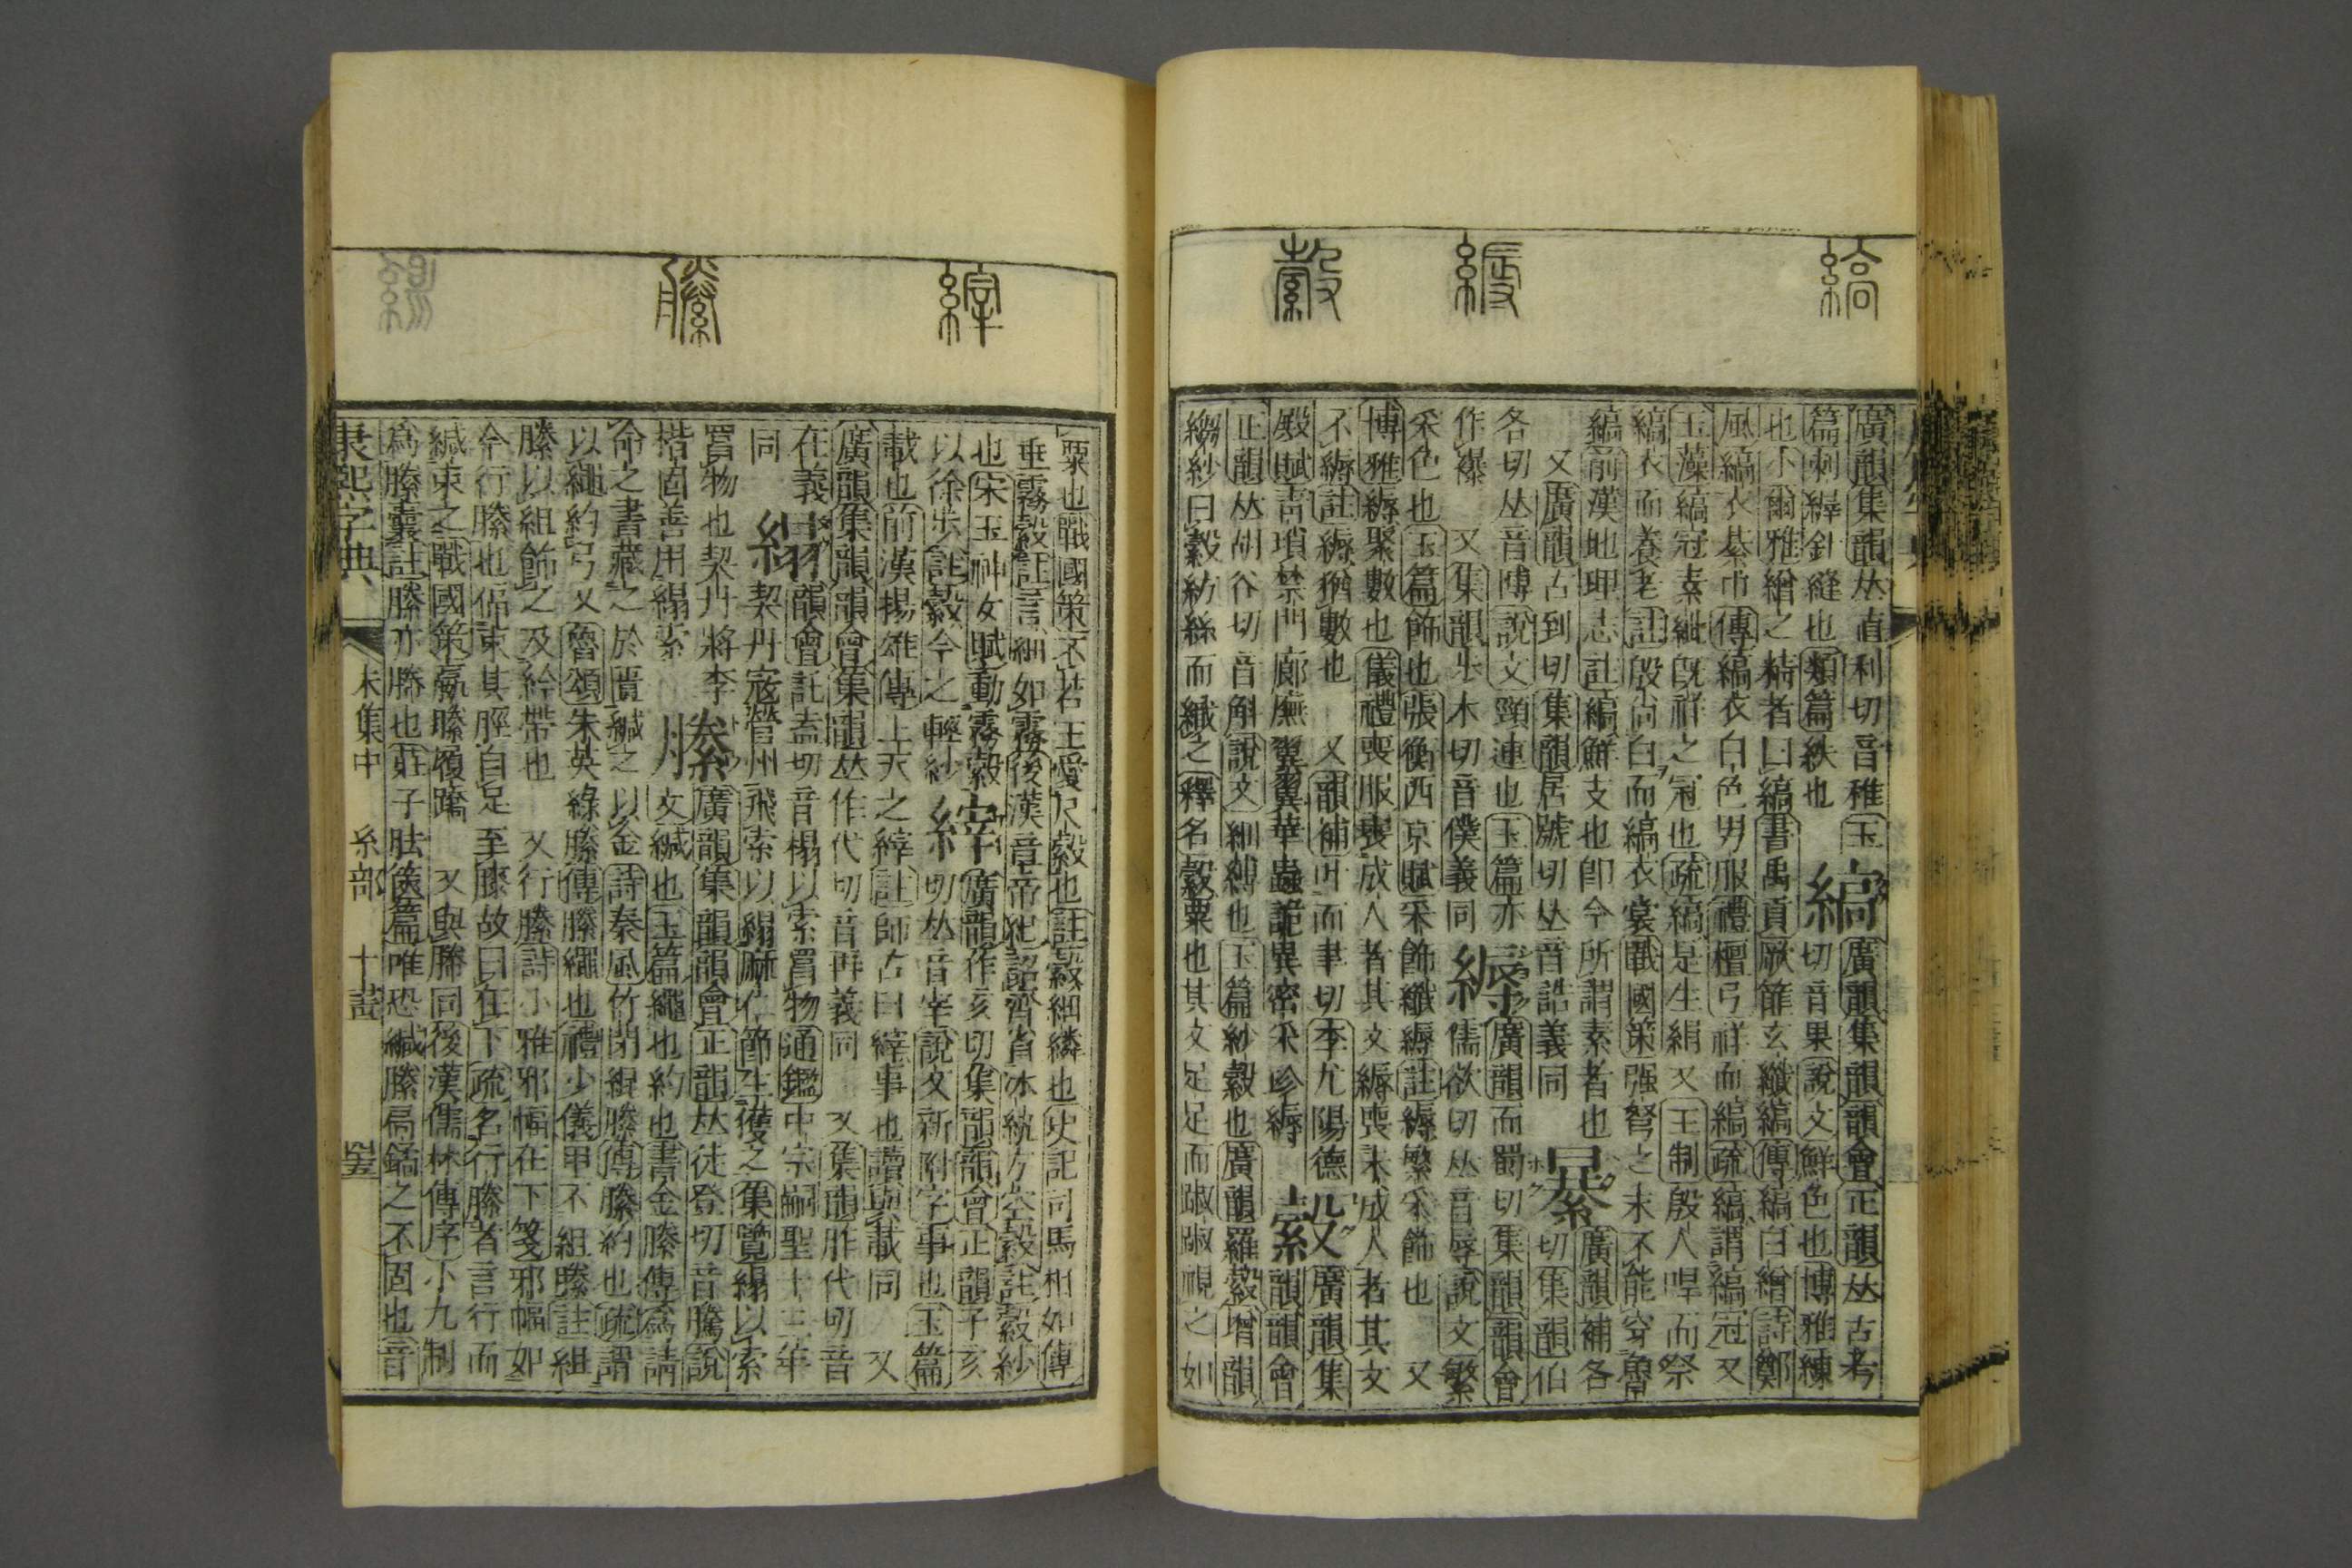 縞
縟
縠
廣韻集韻𠀤直利切音稚玉
篇刺縡針縫也類篇紩也
縞
廣韻集韻韻會正韻𠀤古考
切音杲說文鮮色也博雅練
也小爾雅繒之精者曰縞書禹貢厥篚玄纖縞傳縞白繒詩鄭
風縞衣綦巾傳縞衣白色男服禮檀弓祥而縞疏縞謂縞冠又
玉藻縞冠素紕旣祥之冠也疏縞是生絹又王制殷人哻而祭
縞衣而養老註殷尙白而縞衣裳戰國策强弩之末不能穿魯
縞前漢地理志註縞鮮支也卽今所謂素者也
又廣韻古到切集韻居號切𠀤音誥義同
㬥
廣韻補各
切集韻伯
各切𠀤音博說文頸連也玉篇亦
作襮 又集韻步木切音僕義同
縟
廣韻而蜀切集韻韻會
儒欲切𠀤音辱說文繁
采色也玉篇飾也張衡西京賦采飾纖縟註縟繁采飾也 又
博雅縟聚數也儀禮喪服喪成人者其文縟喪未成人者其文
不縟註縟猶數也 又韻補叶而聿切李尤陽德
殿賦靑瑣禁門廊廡翼翼華蟲詭異密采珍縟
縠
廣韻集
韻韻會
正韻𠀤胡谷切音斛說文細縛也玉篇紗縠也廣韻羅縠增韻
縐紗曰縠紡絲而織之釋名縠粟也其文足足而踧踧視之如
縡
縢
粟也戰國策不若王愛尺縠也註縠細縳也史記司馬相如傳
垂霧縠註言細如霧後漢章帝紀詔齊省冰紈方空縠註縠紗
也宋玉神女賦動霧縠
以徐步註縠今之輕紗
縡
廣韻作亥切集韻韻會正韻子亥
切𠀤音宰說文新附字事也玉篇
載也前漢揚雄傳上天之縡註師古曰縡事也讀與載同 又
廣韻集韻韻會集韻𠀤作代切音再義同 又集韻昨代切音
在義
同
䌈
韻會託盍切音榻以索罥物通鑑中宗嗣聖十三年
契丹寇營州飛索以䌈麻仁節生獲之集覽䌈以索
罥物也契丹將李
楷固善用䌈索
縢
廣韻集韻韻會正韻𠀤徒登切音騰說
文緘也玉篇繩也約也書金縢傳爲請
命之書藏之於匱緘之以金詩秦風竹閉緄縢傳縢約也疏謂
以繩約弓又魯頌朱英綠縢傳縢繩也禮少儀甲不組縢註組
縢以組飾之及紟帶也 又行縢詩小雅邪幅在下箋邪幅如
今行縢也偪束其脛自足至膝故曰在下疏名行縢者言行而
緘束之戰國策羸縢履蹻 又與幐同後漢儒林傳序小乃制
爲縢囊註縢亦幐也莊子胠篋篇唯恐緘縢扃鐍之不固也音
康熙字典
未集中 糸部 十畫